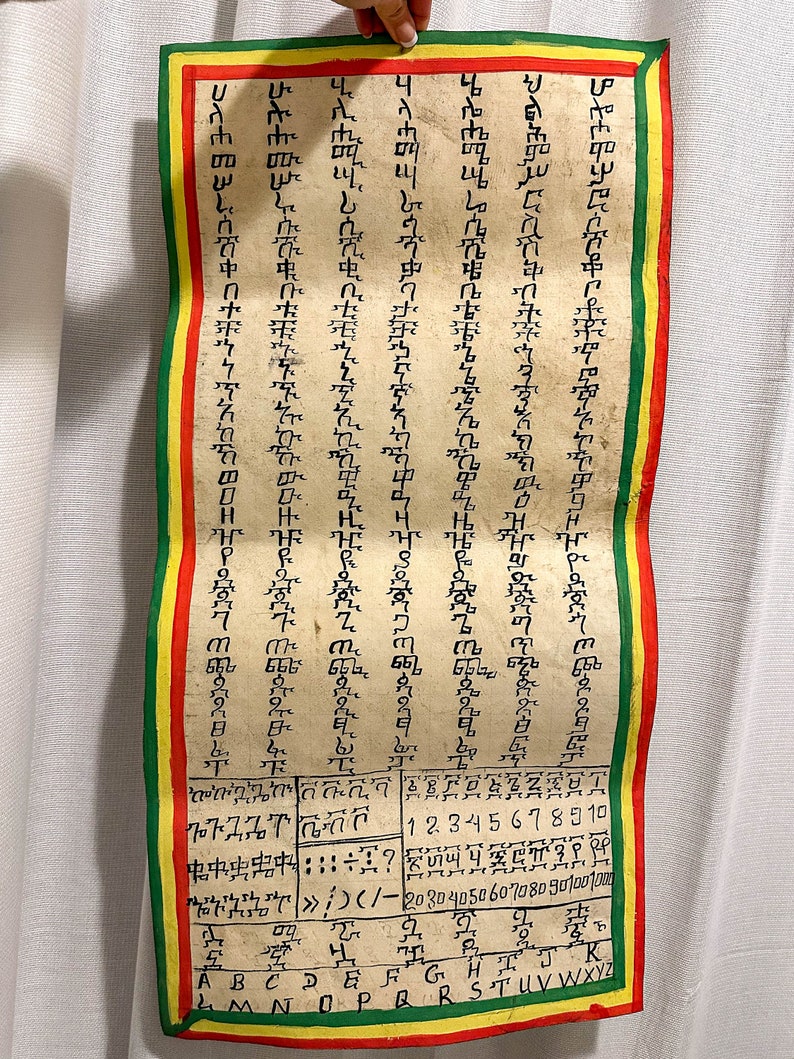 ሀ ሁ ሂ ሃ ሄ ህ ሆ
ለ ሉ ሊ ላ ሌ ል ሎ
ሐ ሑ ሒ ሓ ሔ ሕ ሖ
መ ሙ ሚ ማ ሜ ም ሞ
ሠ ሡ ሢ ሣ ሤ ሥ ሦ
ረ ሩ ሪ ራ ሬ ር ሮ
ሰ ሱ ሲ ሳ ሴ ስ ሶ
ሸ ሹ ሺ ሻ ሼ ሽ ሾ
ቀ ቁ ቂ ቃ ቄ ቅ ቆ
በ ቡ ቢ ባ ቤ ብ ቦ
ተ ቱ ቲ ታ ቴ ት ቶ
ቸ ቹ ቺ ቻ ቼ ች ቾ
ኀ ኁ ኂ ኃ ኄ ኅ ኆ
ነ ኑ ኒ ና ኔ ን ኖ
ኘ ኙ ኚ ኛ ኜ ኝ ኞ
አ ኡ ኢ ኣ ኤ እ ኦ
ከ ኩ ኪ ካ ኬ ክ ኮ
ኸ ኹ ኺ ኻ ኼ ኽ ኾ
ወ ዉ ዊ ዋ ዌ ው ዎ
ዐ ዑ ዒ ዓ ዔ ዕ ዖ
ዘ ዙ ዚ ዛ ዜ ዝ ዞ
ዠ ዡ ዢ ዣ ዤ ዥ ዦ
የ ዩ ዪ ያ ዬ ይ ዮ
ደ ዱ ዲ ዳ ዴ ድ ዶ
ጀ ጁ ጂ ጃ ጄ ጅ ጆ
ገ ጉ ጊ ጋ ጌ ግ ጎ
ጠ ጡ ጢ ጣ ጤ ጥ ጦ
ጨ ጩ ጪ ጫ ጬ ጭ ጮ
ጰ ጱ ጲ ጳ ጴ ጵ ጶ
ጸ ጹ ጺ ጻ ጼ ጽ ጾ
ፀ ፁ ፂ ፃ ፄ ፅ ፆ
ፈ ፉ ፊ ፋ ፌ ፍ ፎ
ፐ ፑ ፒ ፓ ፔ ፕ ፖ
ኰ ኲ ኳ ኴ ኵ
ጐ ጒ ጓ ጔ ጕ
ቈ ቊ ቋ ቌ ቍ
ኈ ኊ ኋ ኌ ኍ
ቨ ቩ ቪ ቫ
ቬ ቭ ቮ
፩ ፪ ፫ ፬ ፭ ፮ ፯ ፰ ፱ ፲
1 2 3 4 5 6 7 8 9 10
፳ ፴ ፵ ፶ ፷ ፸ ፹ ፺ ፻ ፲፻
20 30 40 50 60 70 80 90 100 1000
A B C D E F G H I J K
L M N O P Q R S T U V W X Y Z